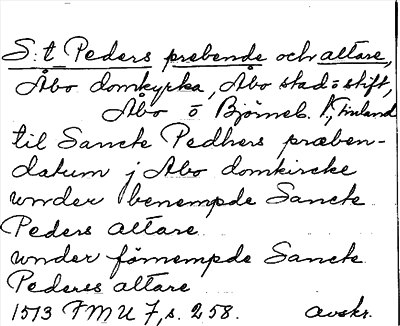 S:t Peders prebende och altare,
Åbo domkyrka, Åbo stad o stift,
Åbo o Björneb. l, Finland
til Sancte Pedhers præben-
datum j Abo domkircke
wnder benempde Sancte
Peders altare
wnder förnempde Sancte
Pederes altare
1513 FMU 7, s. 258. avskr.